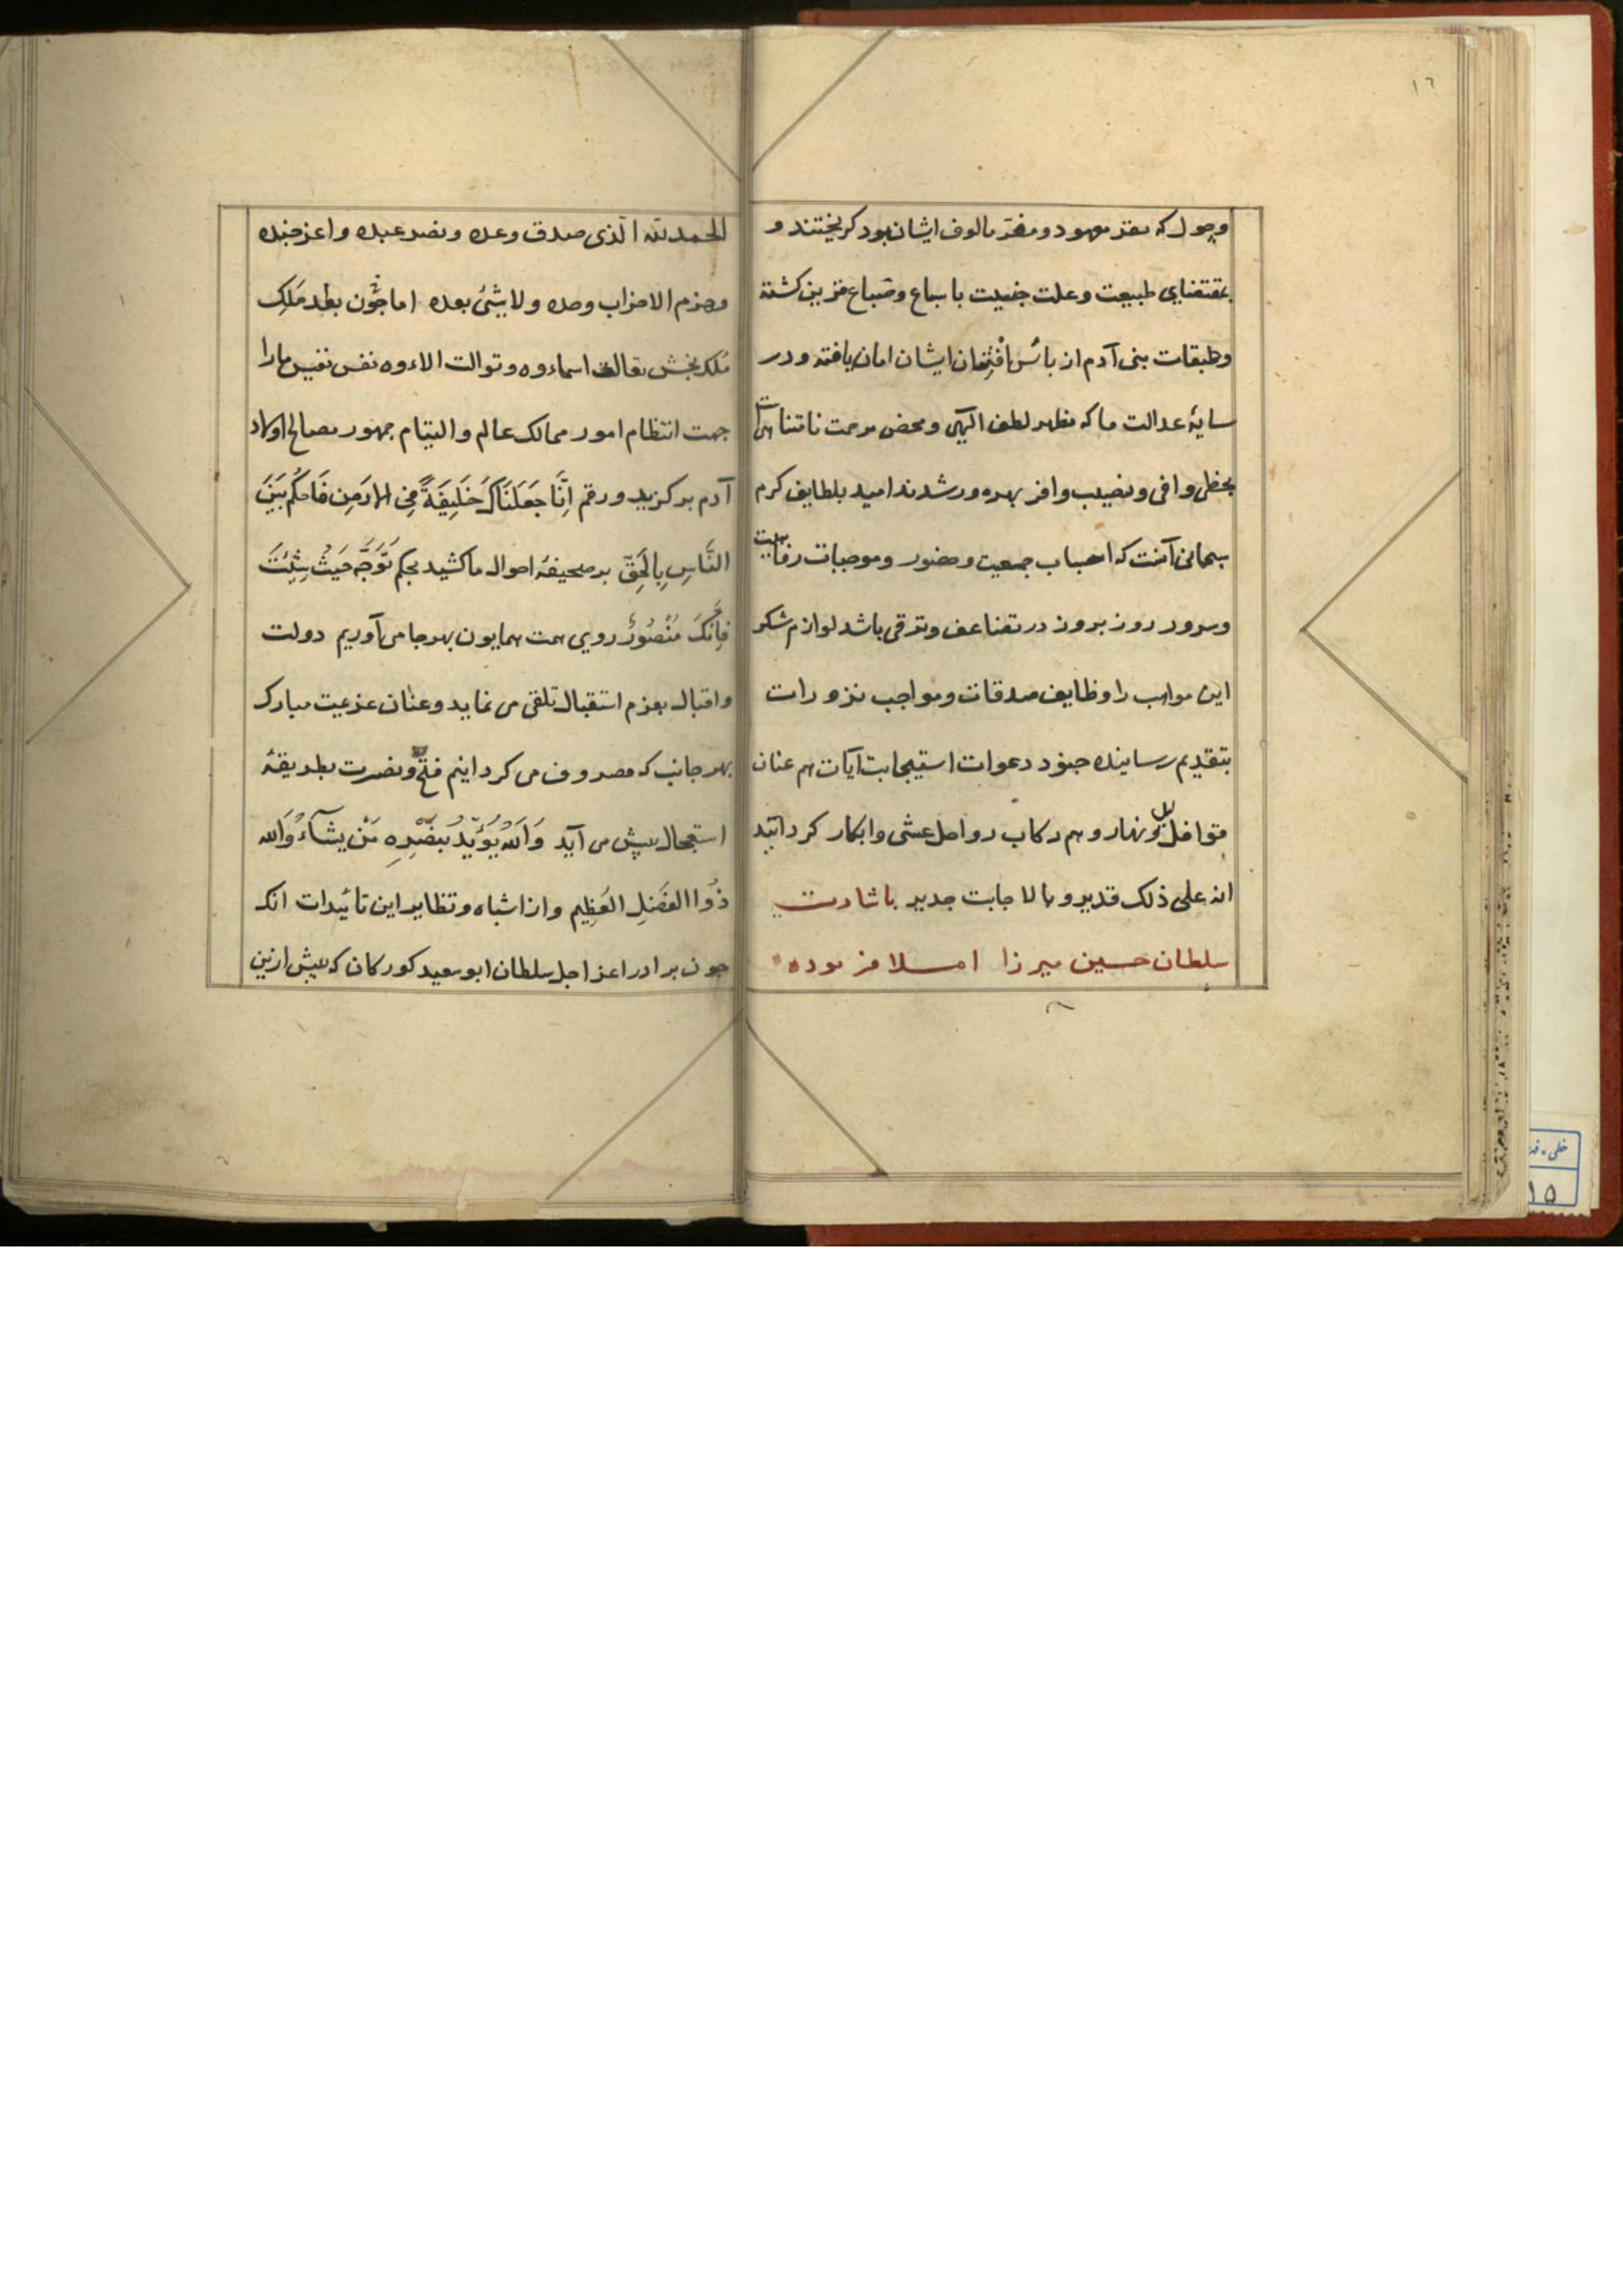 ١٦
وحول که مقر معهود و مفر مالوف ایشان بود کریختند و
بمقتضای طبیعت و علت جنسیت با سباع و ضباع قرین کشته
و طبقات بنی آدم از بائس ایشان امان یافته و در
سایهٔ عدالت ما که مظهر لطف الهی و محض مرحمت نامتناهی است
بحظی وافی و نصیب وافر بهره ور شدند امید بلطایف کرم
سبحانی آنست که اسباب جمعیت و حضور و موجبات رفاهیت
و سرور روز بروز در تضاعف و ترقی باشد لوازم شکر
این مواهب را وظایف صدقات و مواجب نزورات
بتقدیم رسانیده جنود دعوات استیجابت آیات هم عنان
قوافل لیل و نهار و هم رکاب رواحل عشی و ابکار کردانید
انه علی ذلک قدیر و بالاجابت جدیر باشارت
سلطان حسین میرزا املا فرموده
الحمد لله الذی صدق وعده و نصر عبده و اعز جنده
وهزم الاحزاب وحده ولا شئ بعده اما چون ملک
ملک بخش تعالت اسماءوه و توالت الاءوه نفس نفیس ما را
جهت انتظام امور ممالک عالم و التیام جمهور مصالح اولاد
آدم برکزید و رقم اِنَّا جَعَلْنَاکَ خَلِیفَةً فِی الارَضِ فَاحکُم بَیْنَ
النَّاسِ بِالحَقِّ بر صحیفهٔ احوال ما کشید بحکم تَوَجَّه حَیْثُ شِئْتَ
فَاِنَّکَ مَنْصُورٌ روی همت همایون بهرجا می آوریم دولت
و اقبال بعزم استقبال تلقی می نماید و عنان عزیمت مبارک
بهر جانب که مصروف می کردانیم فتح و نصرت بطریقهٔ
استعجال پیش می آید وَاللهُ یُؤَیِّدُ بِنَصْرِهِ مَنْ یَشآءُ وَالله
ذُوا الفَضْلِ العَظِیم و از اشباه و نظایر این تائیدات انکه
جون برادر اعز اجل سلطان ابوسعید کورکان که پیش ازین
خطی - ف
۱۵